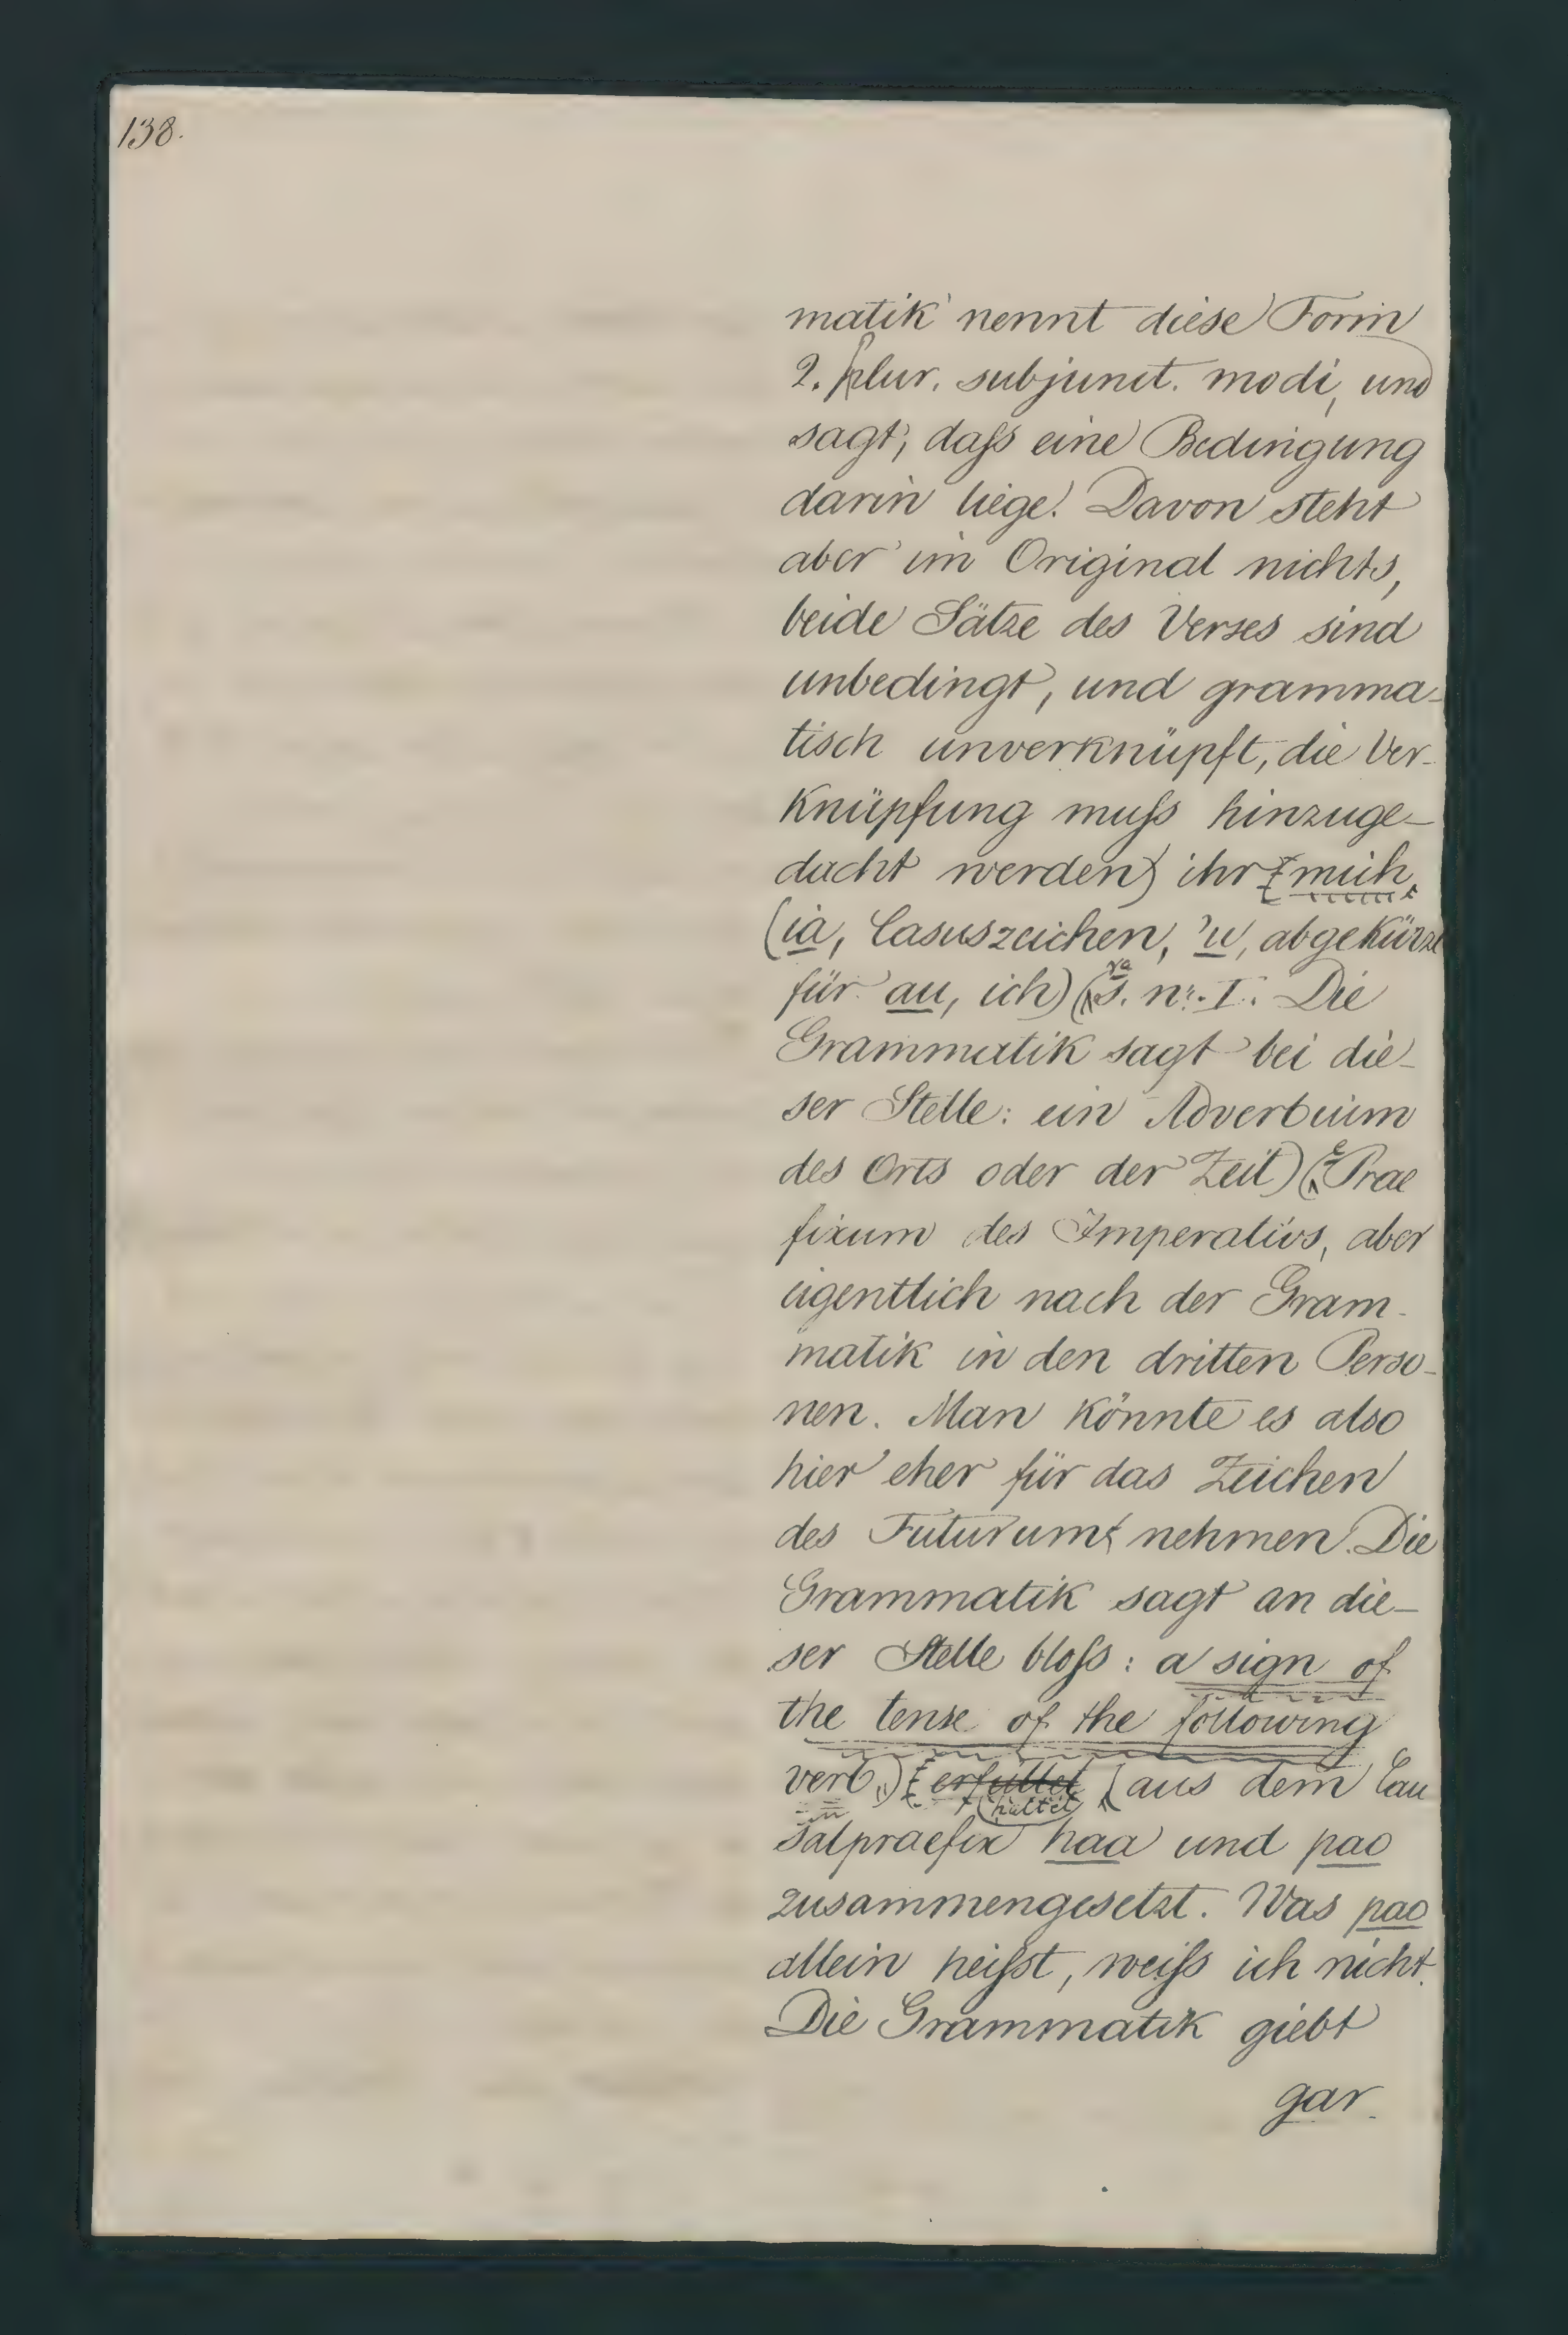 138.
matik nennt diese Form
2. plur. subjunct. modi, und
sagt, daſs eine Bedingung
darin liege. Davon steht
aber im Original nichts,
beide Sätze des Verses sind
unbedingt, und gramma-
tisch unverknüpft, die Ver-
knüpfung muſs hinzuge-
dacht werden) ihr mich
(ia, Casuszeichen, 'u, abgekürzt
für au, ich) (ra s. nr. I. Die
Grammatik sagt bei die-
ser Stelle: ein Adverbium
des Orts oder der Zeit) (e Prae
fixum des Imperativs, aber
eigentlich nach der Gram-
matik in den dritten Perso-
nen. Man könnte es also
hier eher für das Zeichen
des Futurum nehmen. Die
Grammatik sagt an die-
ser Stelle bloſs: a sign of
the tense of the following
verb.) erfüllet (aus dem Cau
haltet
salpraefix haa und pao
zusammengesetzt. Was pao
allein heiſst, weiſs ich nicht.
Die Grammatik giebt
gar